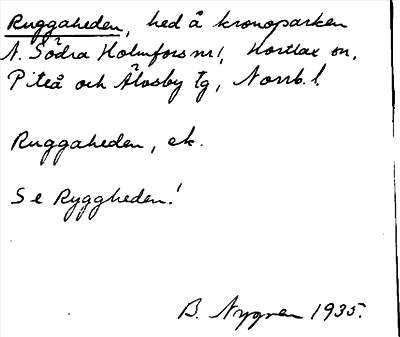 Ruggaheden, hed å kronoparken
N. Södra Holmfors nr 1, Hortlax sn,
Piteå och Älvsby tg, Norrb. l.
Ruggaheden, ek.
Se Ryggheden!
B. Nygren 1935.